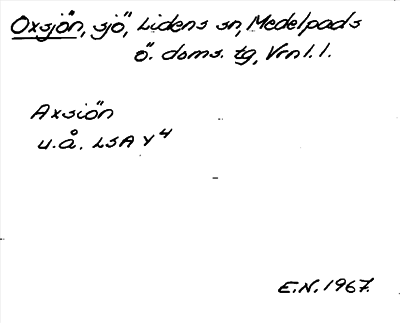 Oxsjön, sjö, Lidens sn, Medelpads
ö. doms. tg, Vrnl. l.
Axsiön
u.å. LSA Y4
E.N. 1967.